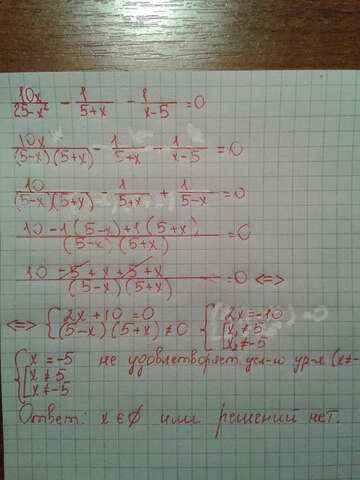 10x/(25-x²) - 1/(5+x) - 1/(x-5) = 0
10x/((5-x)(5+x)) - 1/(5+x) - 1/(x-5) = 0
10/((5-x)(5+x)) - 1/(5+x) + 1/(5-x) = 0
(10-1(5-x)+1(5+x))/((5-x)(5+x)) = 0
(10-5+x+5+x)/((5-x)(5+x)) = 0 <=>
<=> { 2x+10=0 { 2x=-10
(5-x)(5+x)≠0 [ x₁≠5
x₂≠-5
{ x=-5 не удовлетворяет усл-ю ур-я (x≠-
[ x≠5
x≠-5
Ответ: x∈∅ или решений нет.